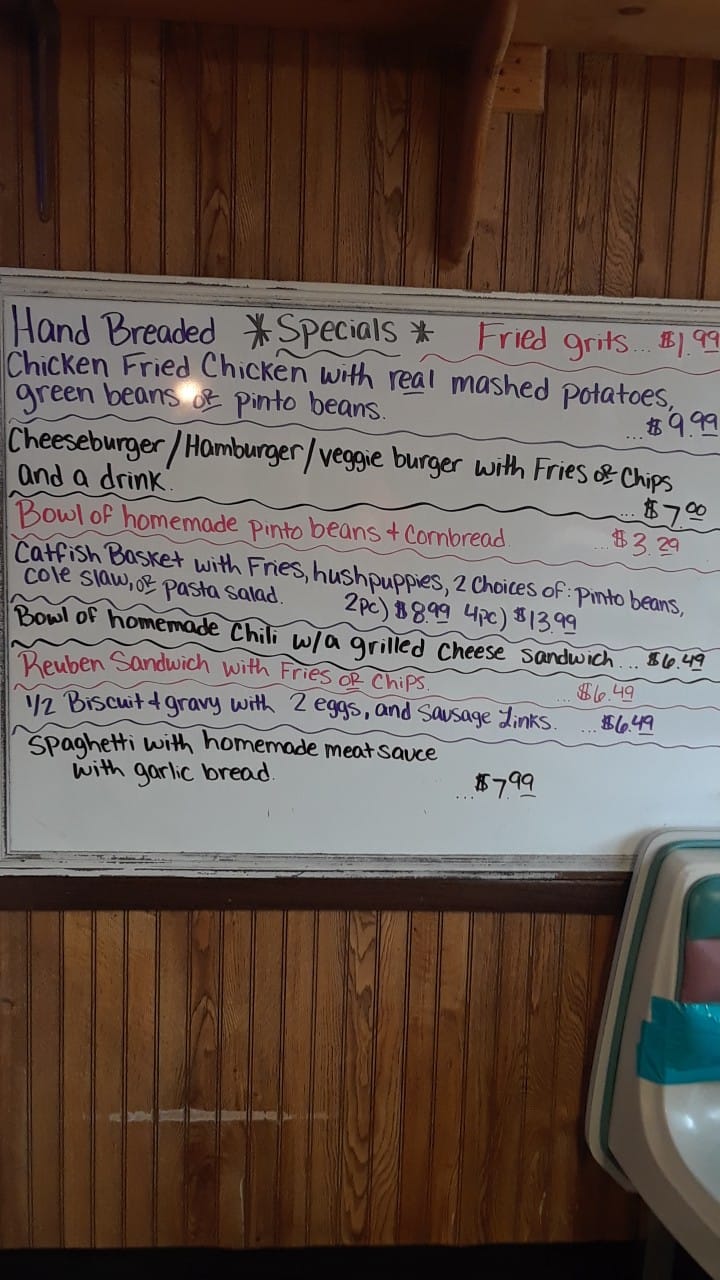 Hand Breaded *Specials* Fried grits... $1.99
Chicken Fried Chicken with real mashed potatoes,
green beans or pinto beans. ...$9.99
Cheeseburger/Hamburger/veggie burger with Fries or Chips
and a drink. ...$7.00
Bowl of homemade pinto beans + Cornbread ...$3.29
Catfish Basket with Fries, hushpuppies, 2 Choices of: pinto beans,
cole slaw, or pasta salad. 2pc) $8.99 4pc) $13.99
Bowl of homemade Chili w/a grilled cheese sandwich... $6.49
Reuben Sandwich with Fries OR Chips. ...$6.49
1/2 Biscuit & gravy with 2 eggs, and sausage Links. ...$6.49
Spaghetti with homemade meat sauce
with garlic bread. ...$7.99